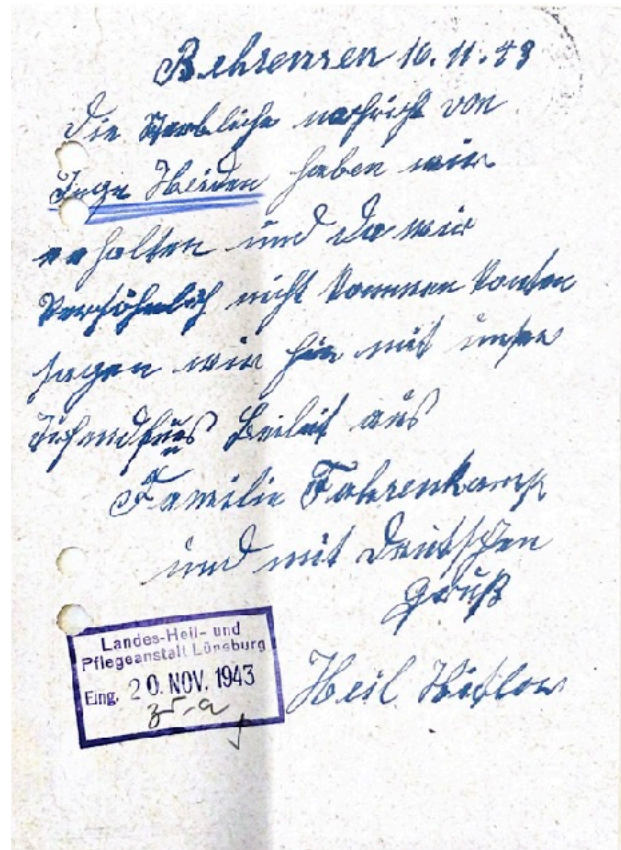 Behrensen 16.11.43
Die sterbliche nachricht von
Inge Heiden haben wir
erhalten und da wir
Persöhnlich nicht kommen konten
sagen wir hir mit unser
Beileit aus
Familie Fahrenkamp
und mit Deutschen
Gruß
Heil Hitler
Landes-Heil- und
Pflegeanstalt Lüneburg
Eing. 20. NOV. 1943